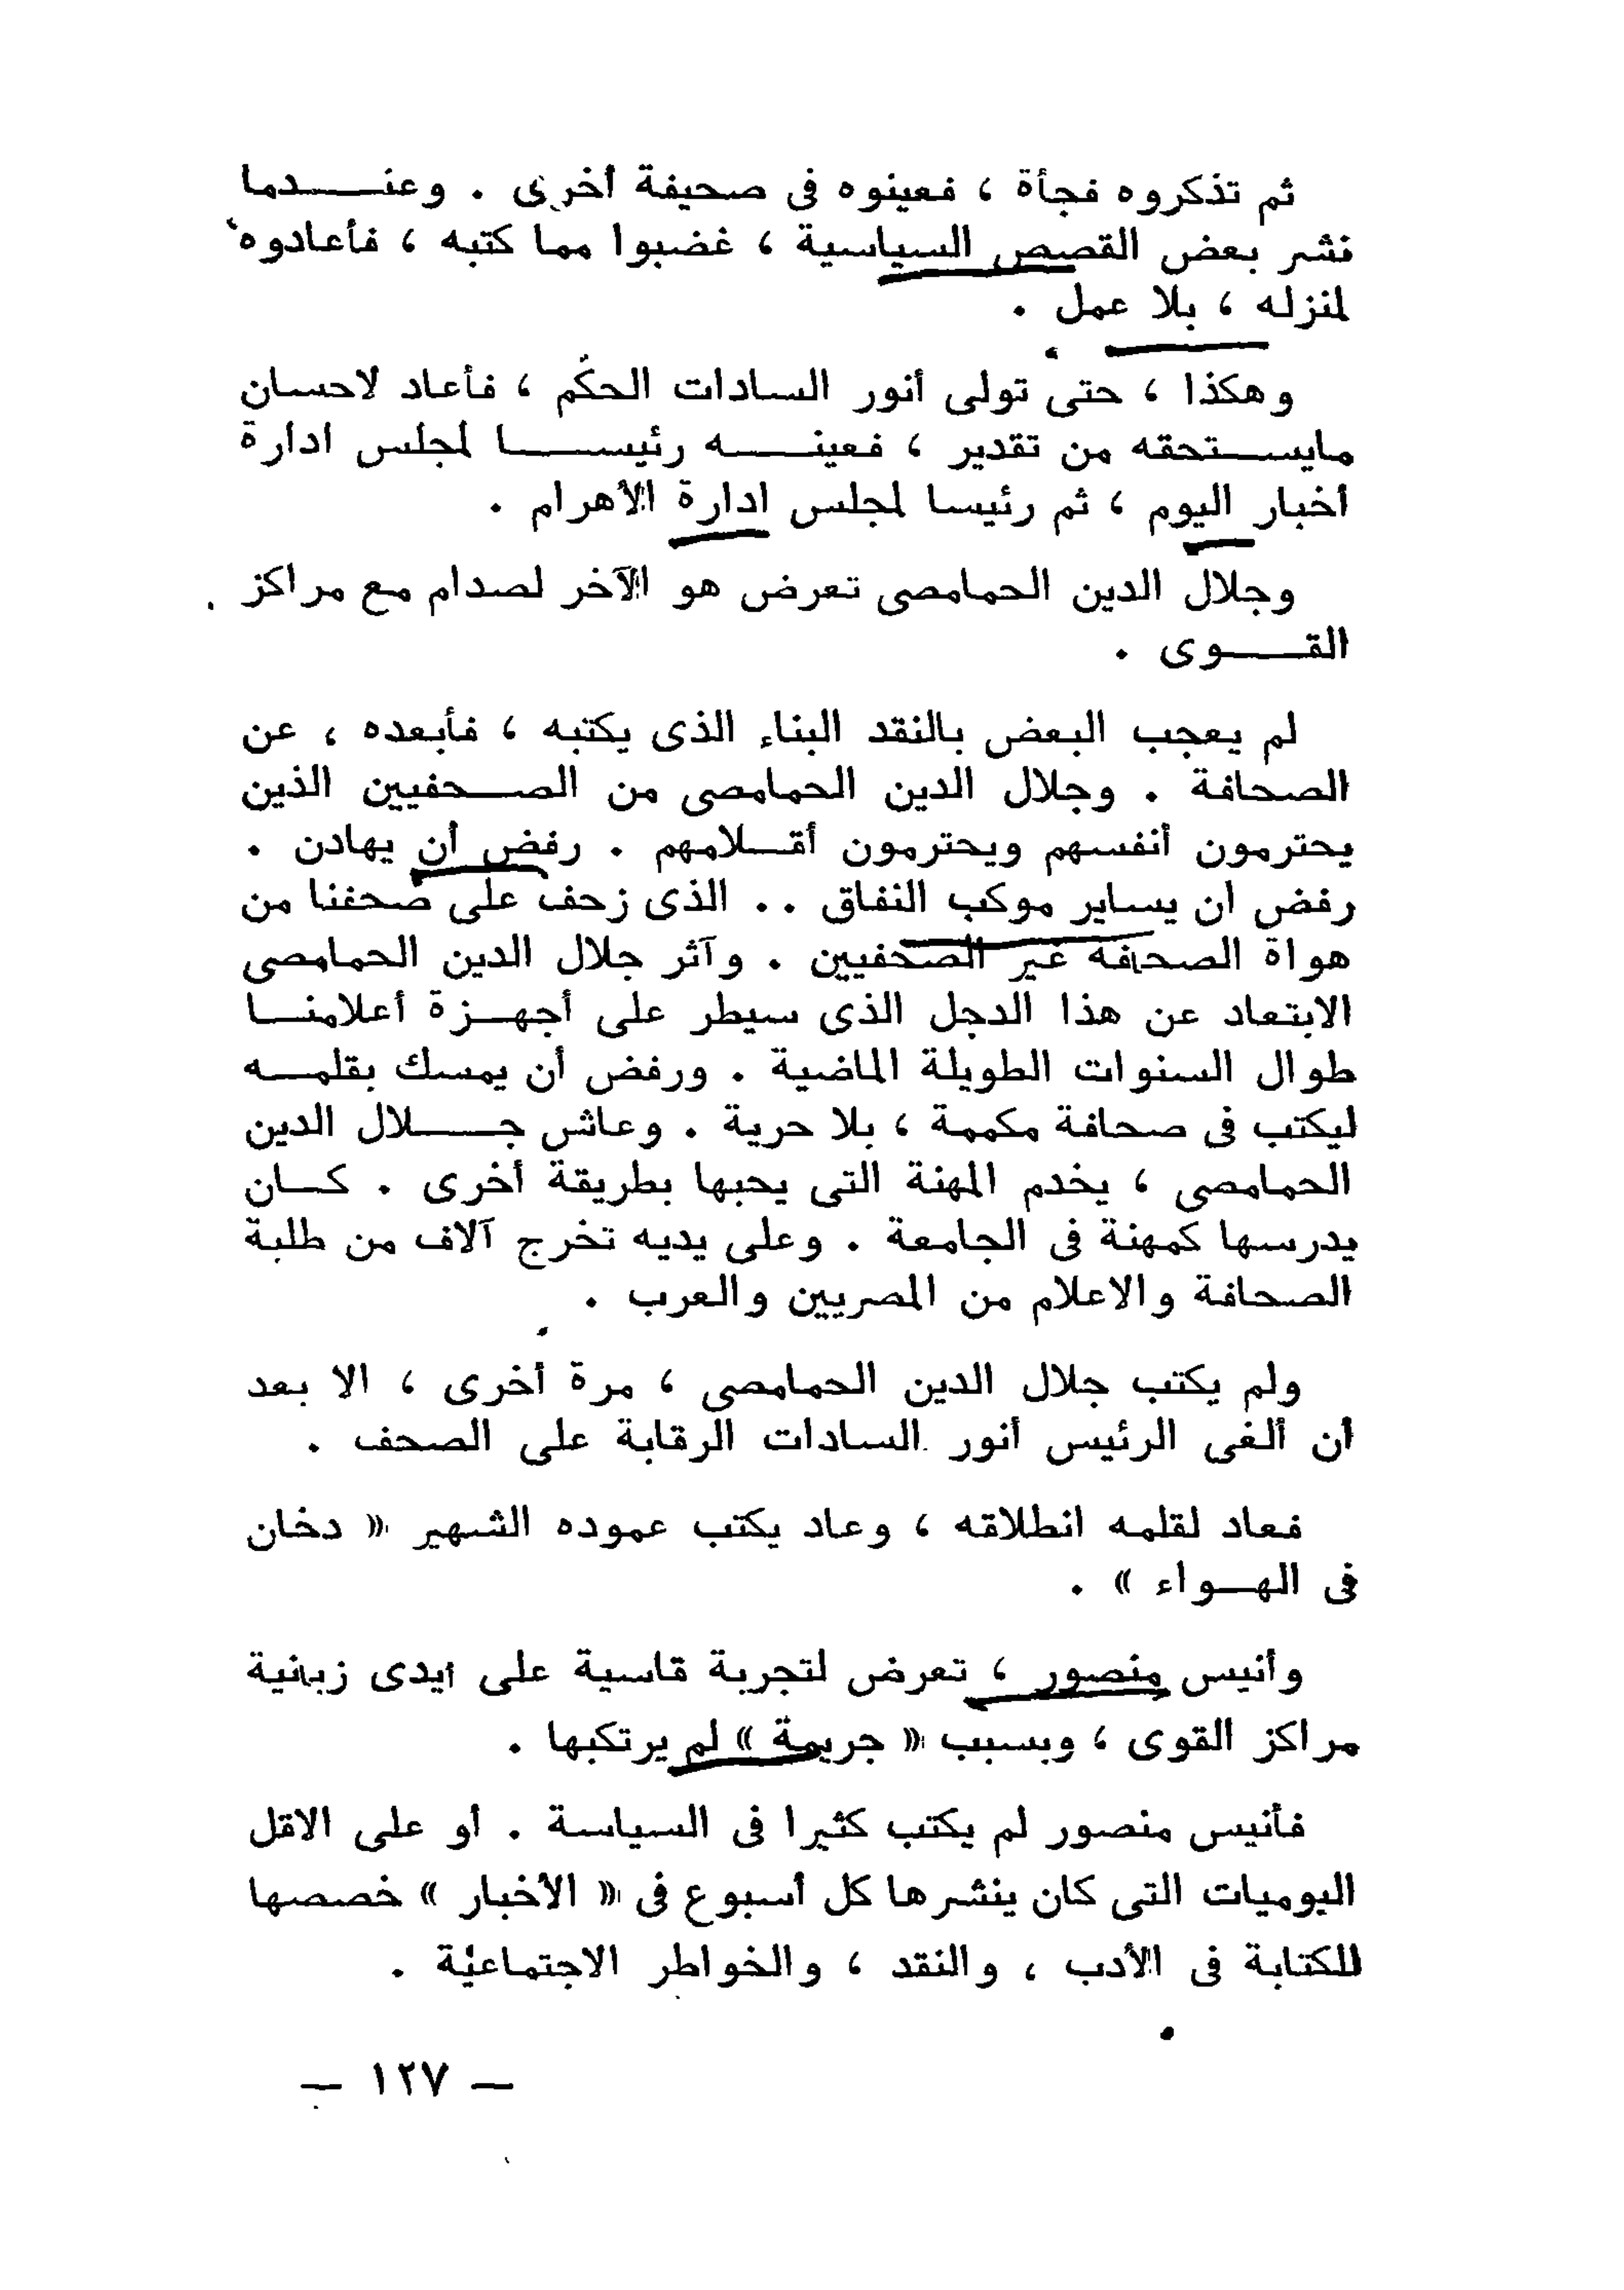 ثم تذكروه فجأة ، فعينوه فى صحيفة أخرى . وعندما
نشر بعض القصص السياسية ، غضبوا مما كتبه ، فأعادوه
لمنزله ، بلا عمل .
وهكذا ، حتى تولى أنور السادات الحكم ، فأعاد لاحسان
مايستحقه من تقدير ، فعينه رئيسا لمجلس ادارة
أخبار اليوم ، ثم رئيسا لمجلس ادارة الأهرام .
وجلال الدين الحمامصى تعرض هو الآخر لصدام مع مراكز
القوى .
لم يعجب البعض بالنقد البناء الذى يكتبه ، فأبعده ، عن
الصحافة . وجلال الدين الحمامصى من الصحفيين الذين
يحترمون أنفسهم ويحترمون أقلامهم . رفض أن يهادن .
رفض ان يساير موكب النفاق .. الذى زحف على صحفنا من
هواة الصحافة غير الصحفيين . وآثر جلال الدين الحمامصى
الابتعاد عن هذا الدجل الذى سيطر على أجهزة أعلامنا
طوال السنوات الطويلة الماضية . ورفض أن يمسك بقلمه
ليكتب فى صحافة مكممة ، بلا حرية . وعاش جلال الدين
الحمامصى ، يخدم المهنة التى يحبها بطريقة أخرى . كان
يدرسها كمهنة فى الجامعة . وعلى يديه تخرج آلاف من طلبة
الصحافة والاعلام من المصريين والعرب .
ولم يكتب جلال الدين الحمامصى ، مرة أخرى ، الا بعد
أن ألغى الرئيس أنور السادات الرقابة على الصحف .
فعاد لقلمه انطلاقه ، وعاد يكتب عموده الشهير « دخان
فى الهواء » .
وأنيس منصور ، تعرض لتجربة قاسية على أيدى زبانية
مراكز القوى ، وبسبب « جريمة » لم يرتكبها .
فأنيس منصور لم يكتب كثيرا فى السياسة . أو على الاقل
اليوميات التى كان ينشرها كل أسبوع فى « الأخبار » خصصها
للكتابة فى الأدب ، والنقد ، والخواطر الاجتماعية .
— ١٢٧ —